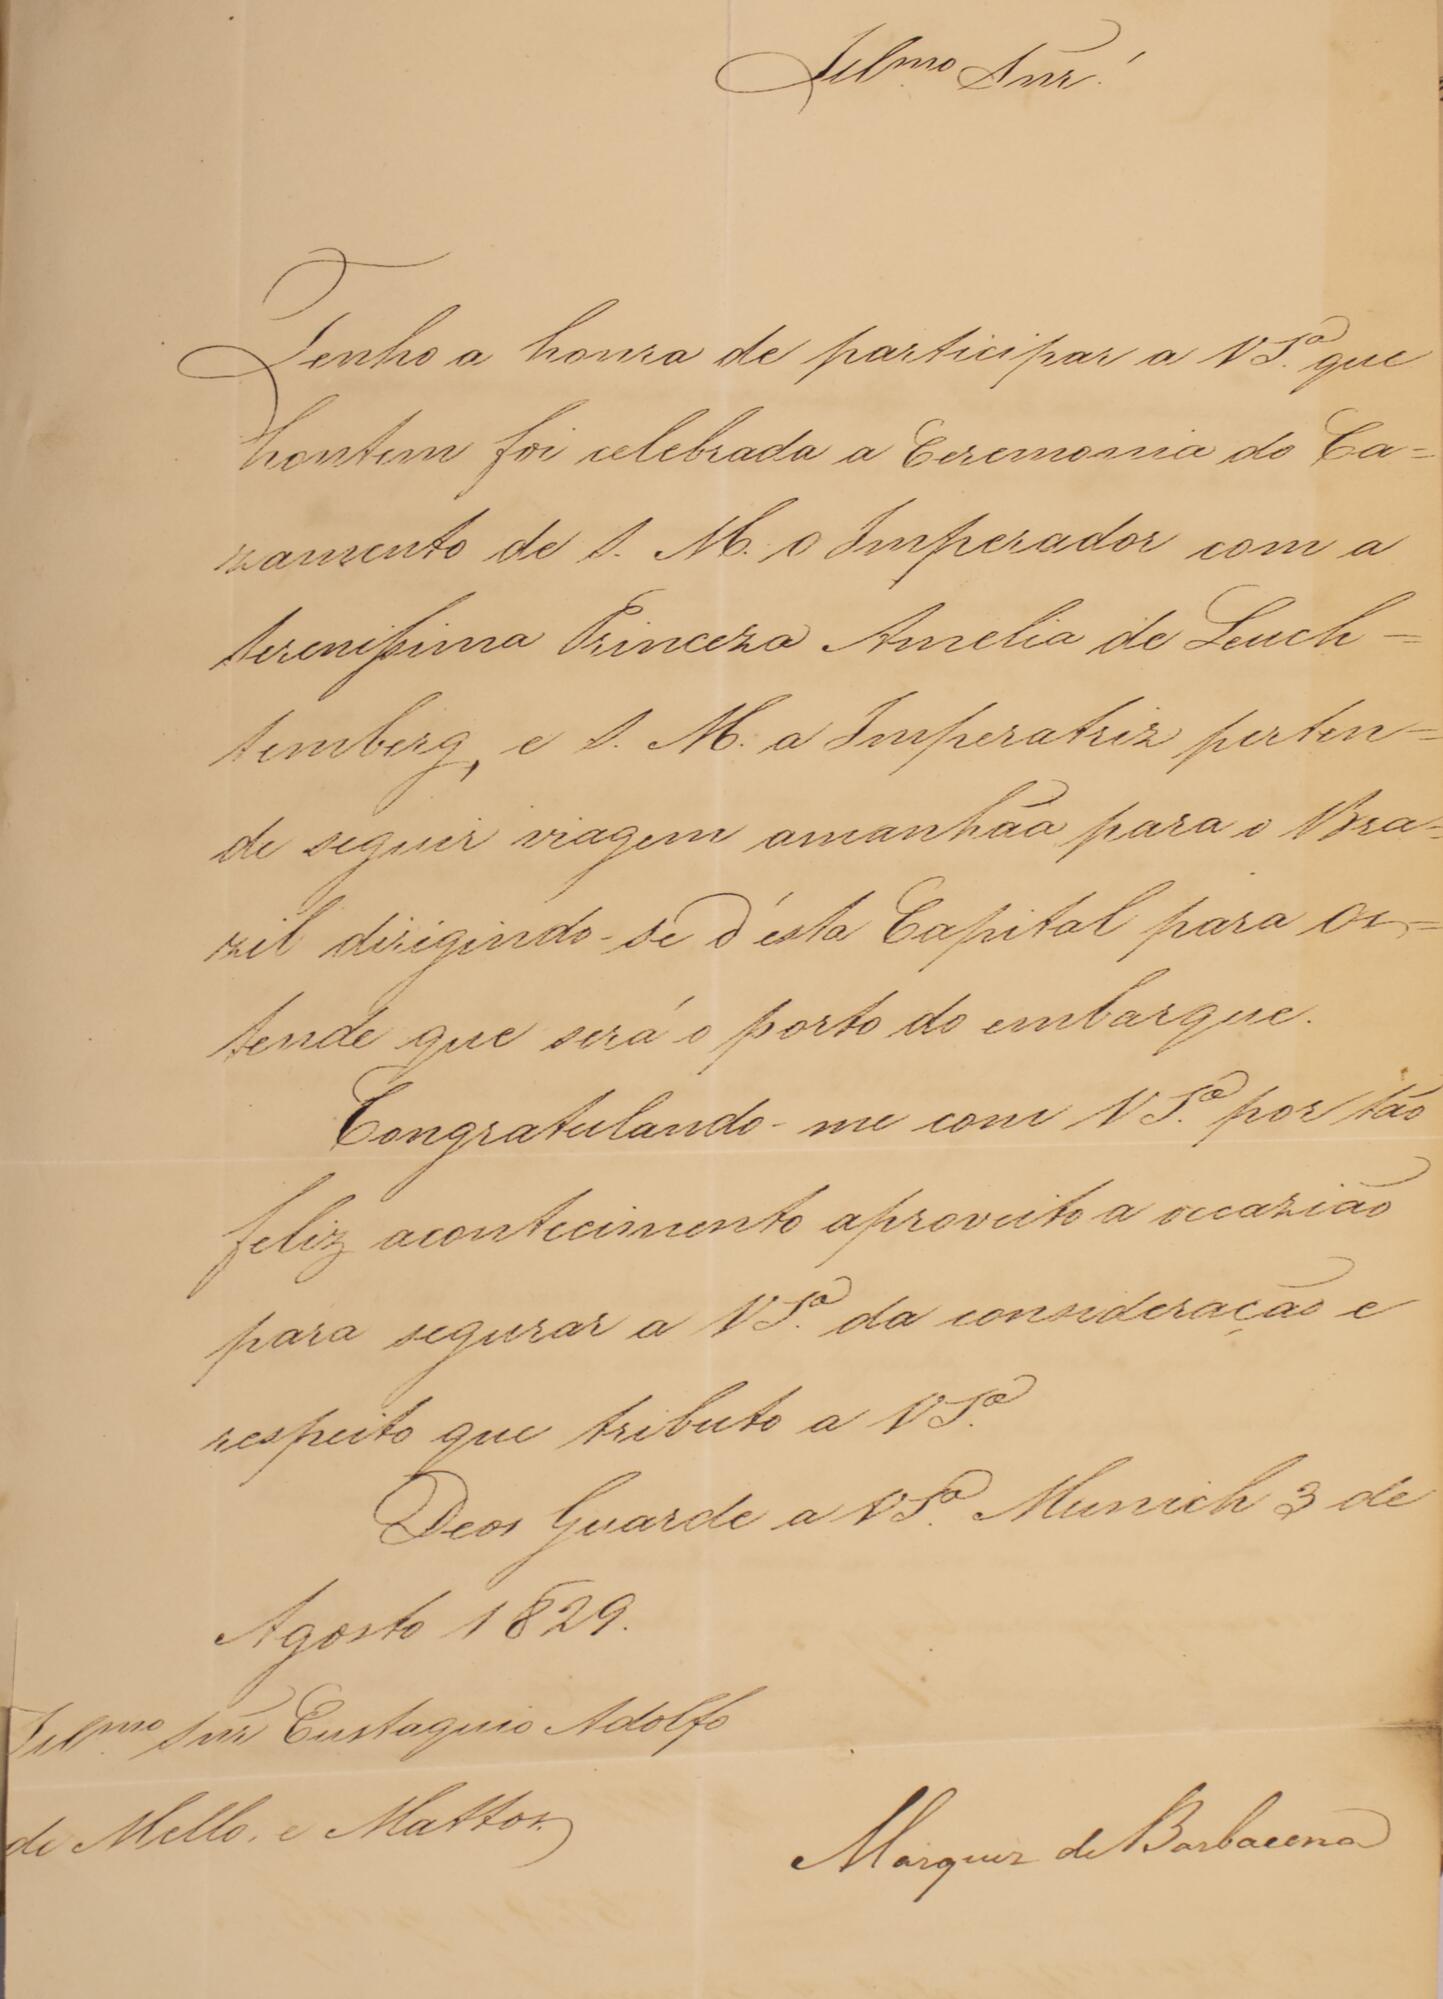 Ill.mo Snr.
Tenho a honra de participar a V S.a que
hontem foi celebrada a Ceremonia do Ca=
zamento de S. M. o Imperador com a
Serenissima Princeza Amelia de Leuch=
temberg, e S. M. a Imperatriz perten=
de seguir viagem amanhãa para o Bra=
zil dirigindo-se d'esta Capital para Os=
tende que será o porto do embarque.
Congratulando-me com V S.a por tão
feliz acontecimento aproveito a occazião
para segurar a V S.a da consideração e
respeito que tributo a V S.a
Deos Guarde a V S.a Munich 3 de
Agosto 1829.
Ill.mo Snr Eustaquio Adolfo
de Mello. e Mattos
Marquez de Barbacena